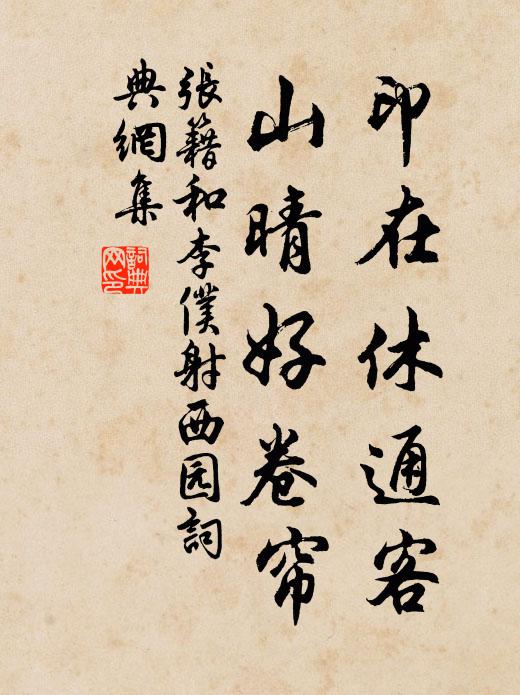 印在休通客
山晴好卷帘
張籍和李僕射西园詞
典網集
詞典网印